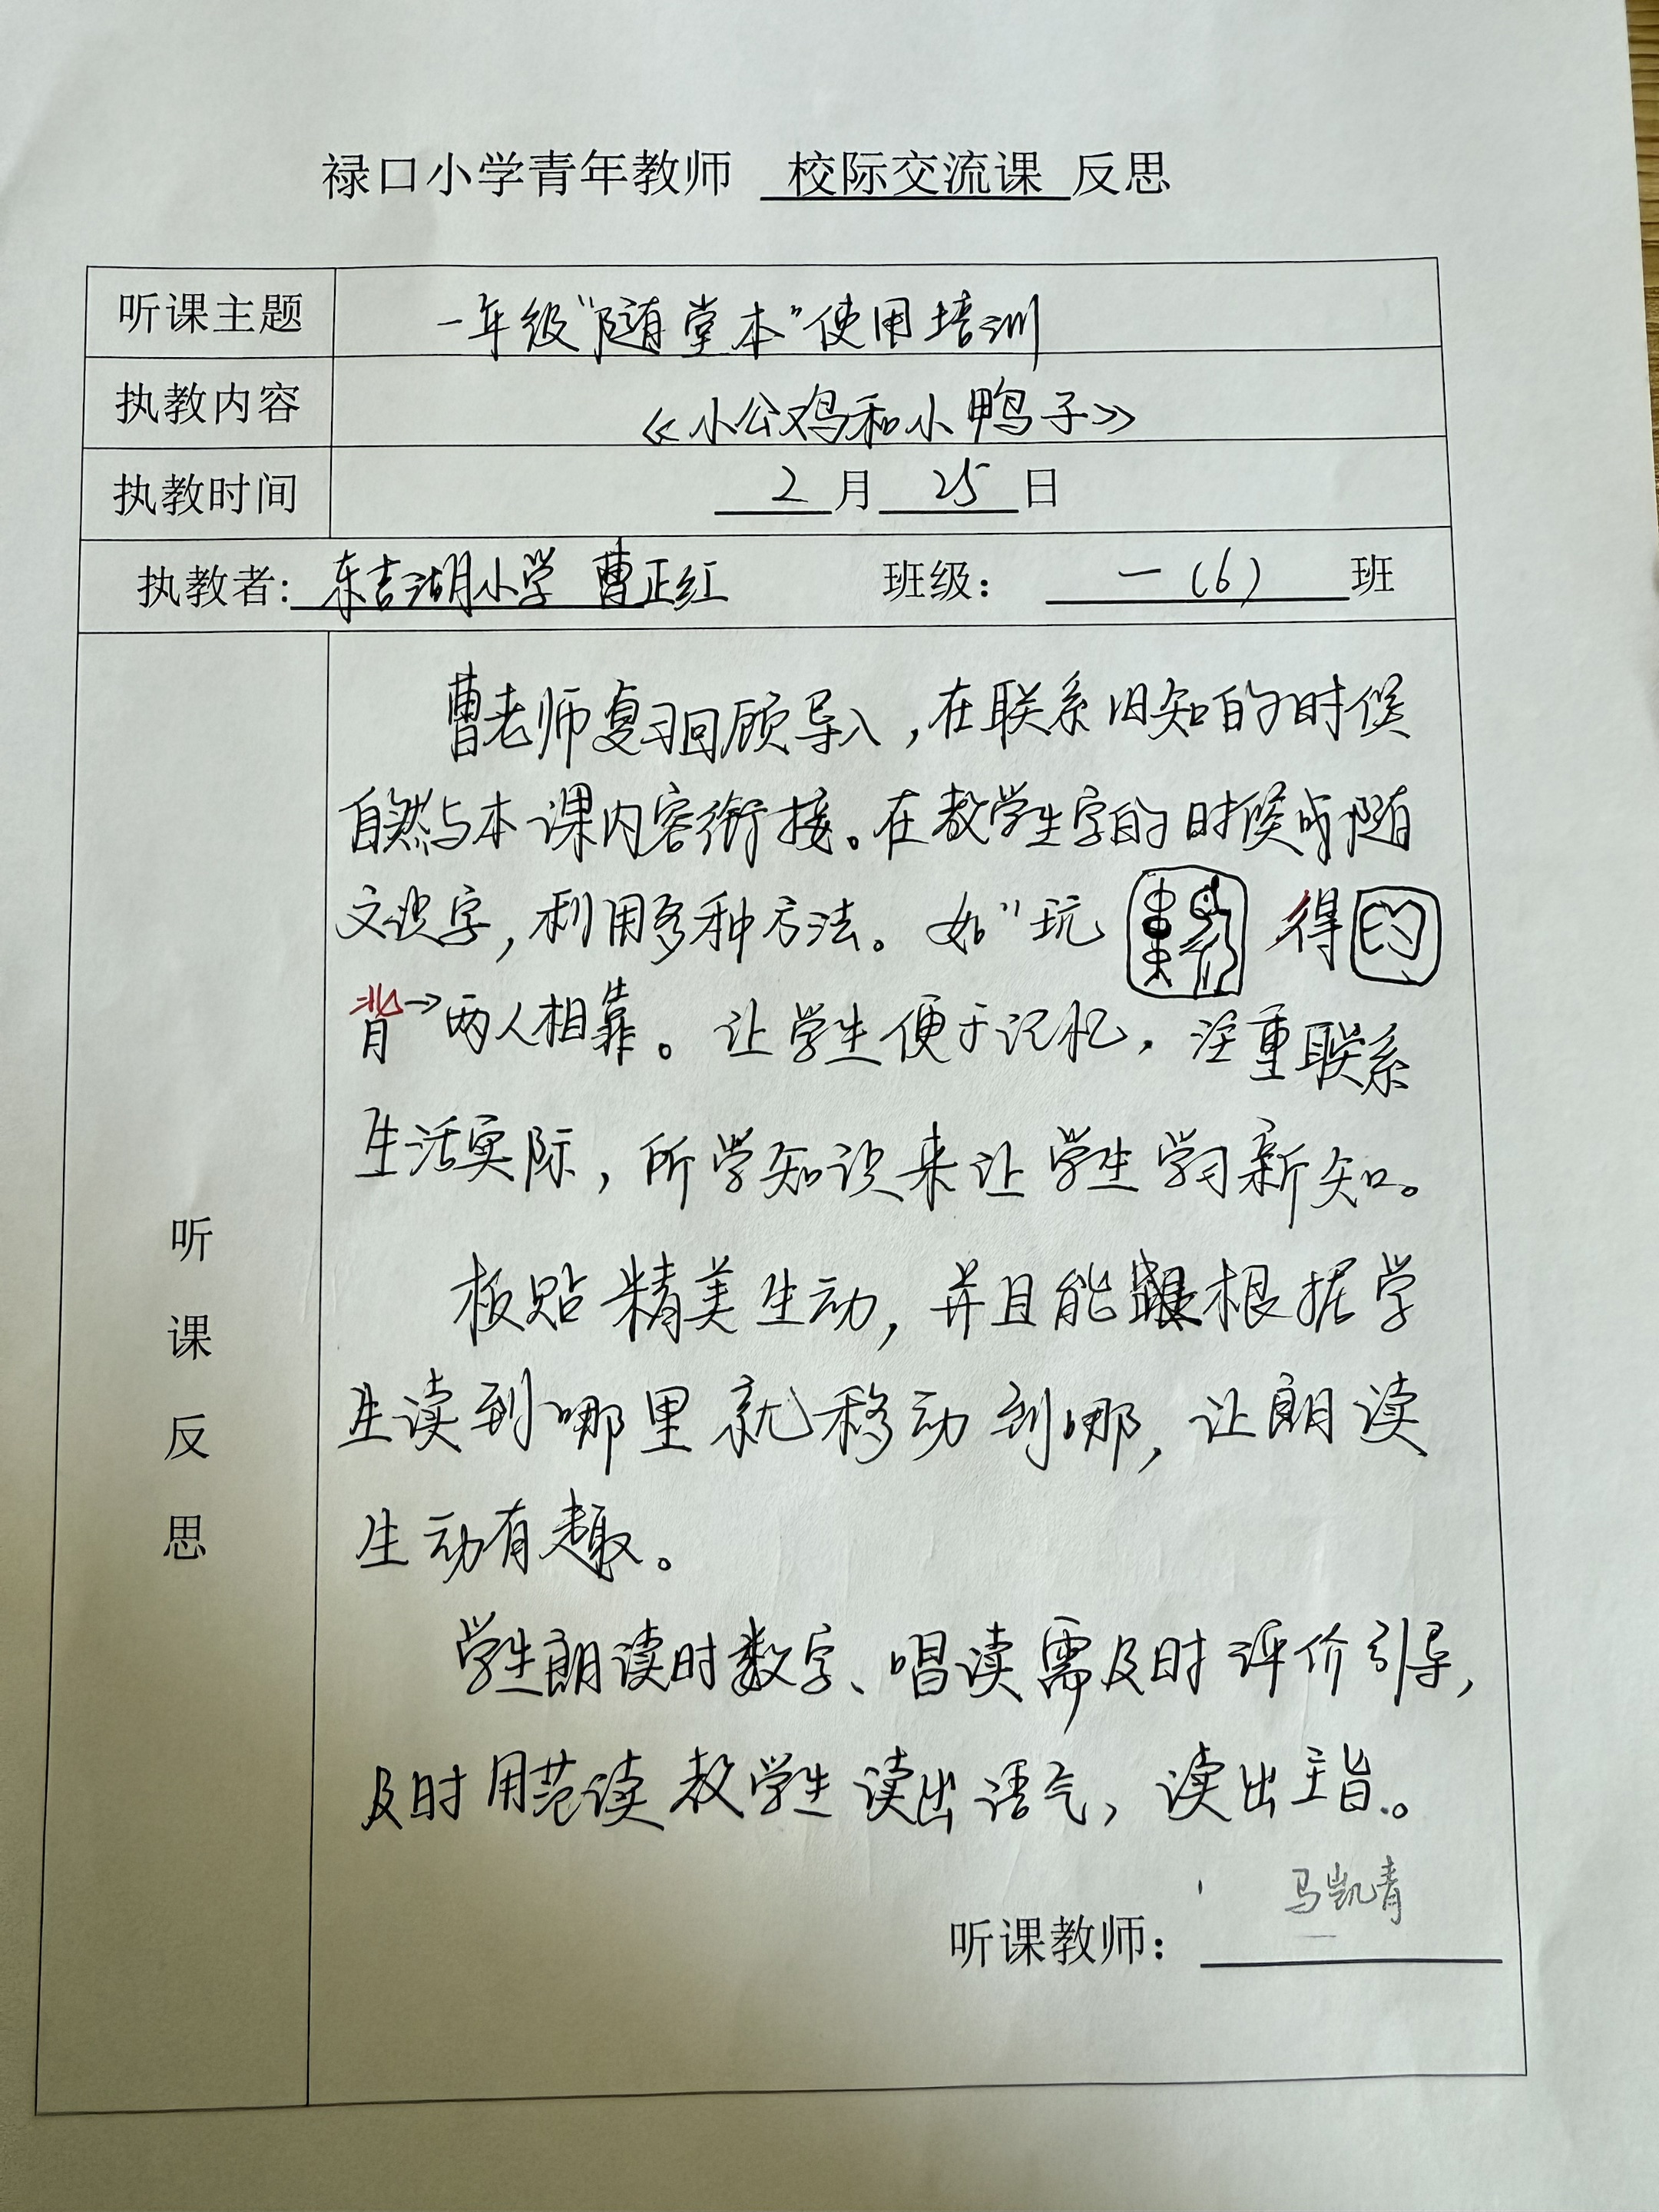 禄口小学青年教师 校际交流课 反思
听课主题 一年级“随堂本”使用培训
执教内容 《小公鸡和小鸭子》
执教时间 2月25日
执教者：东吉湖小学 曹正红 班级：一(6)班
听课反思
曹老师复习回顾导入，在联系旧知的时候
自然与本课内容衔接。在教学生字的时候成随
文识字，利用多种方法。如“玩 得
背→两人相靠。让学生便于记忆，注重联系
生活实际，所学知识来让学生学习新知。
板贴精美生动，并且能根据学
生读到哪里就移动到哪，让朗读
生动有趣。
学生朗读时数字、唱读需及时评价引导，
及时用范读教学生读出语气，读出主旨。
听课教师：马凯青